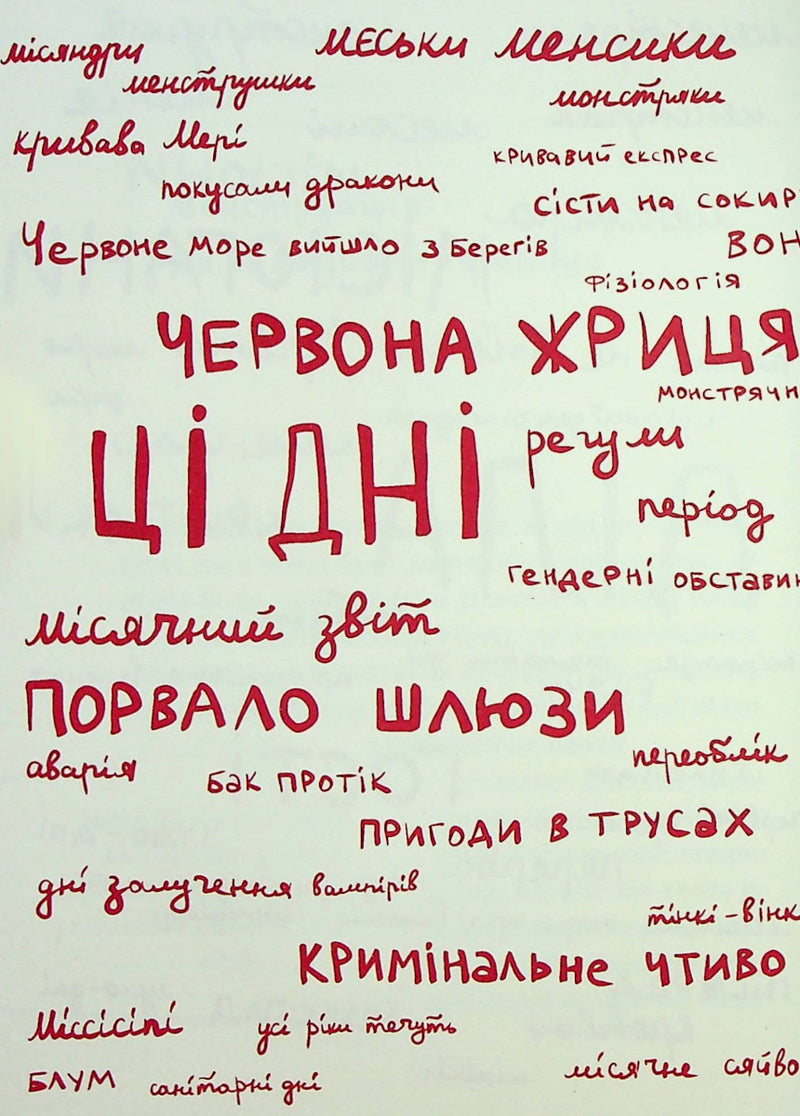 місяндри
меськи менсики
менструшки
монстряки
кривава Мері
кривавий експрес
покусали дракони
сісти на сокир
Червоне море вийшло з берегів
вон
фізіологія
ЧЕРВОНА ЖРИЦЯ
монстрячн
ЦІ ДНІ
регули
період
гендерні обставин
місячний звіт
ПОРВАЛО ШЛЮЗИ
аварія
бак протік
переоблік
ПРИГОДИ В ТРУСАХ
дні залучення вампірів
тінкі-вінк
КРИМІНАЛЬНЕ ЧТИВО
Міссісіпі
усі ріки течуть
місячне сяйво
БЛУМ
санітарні дні